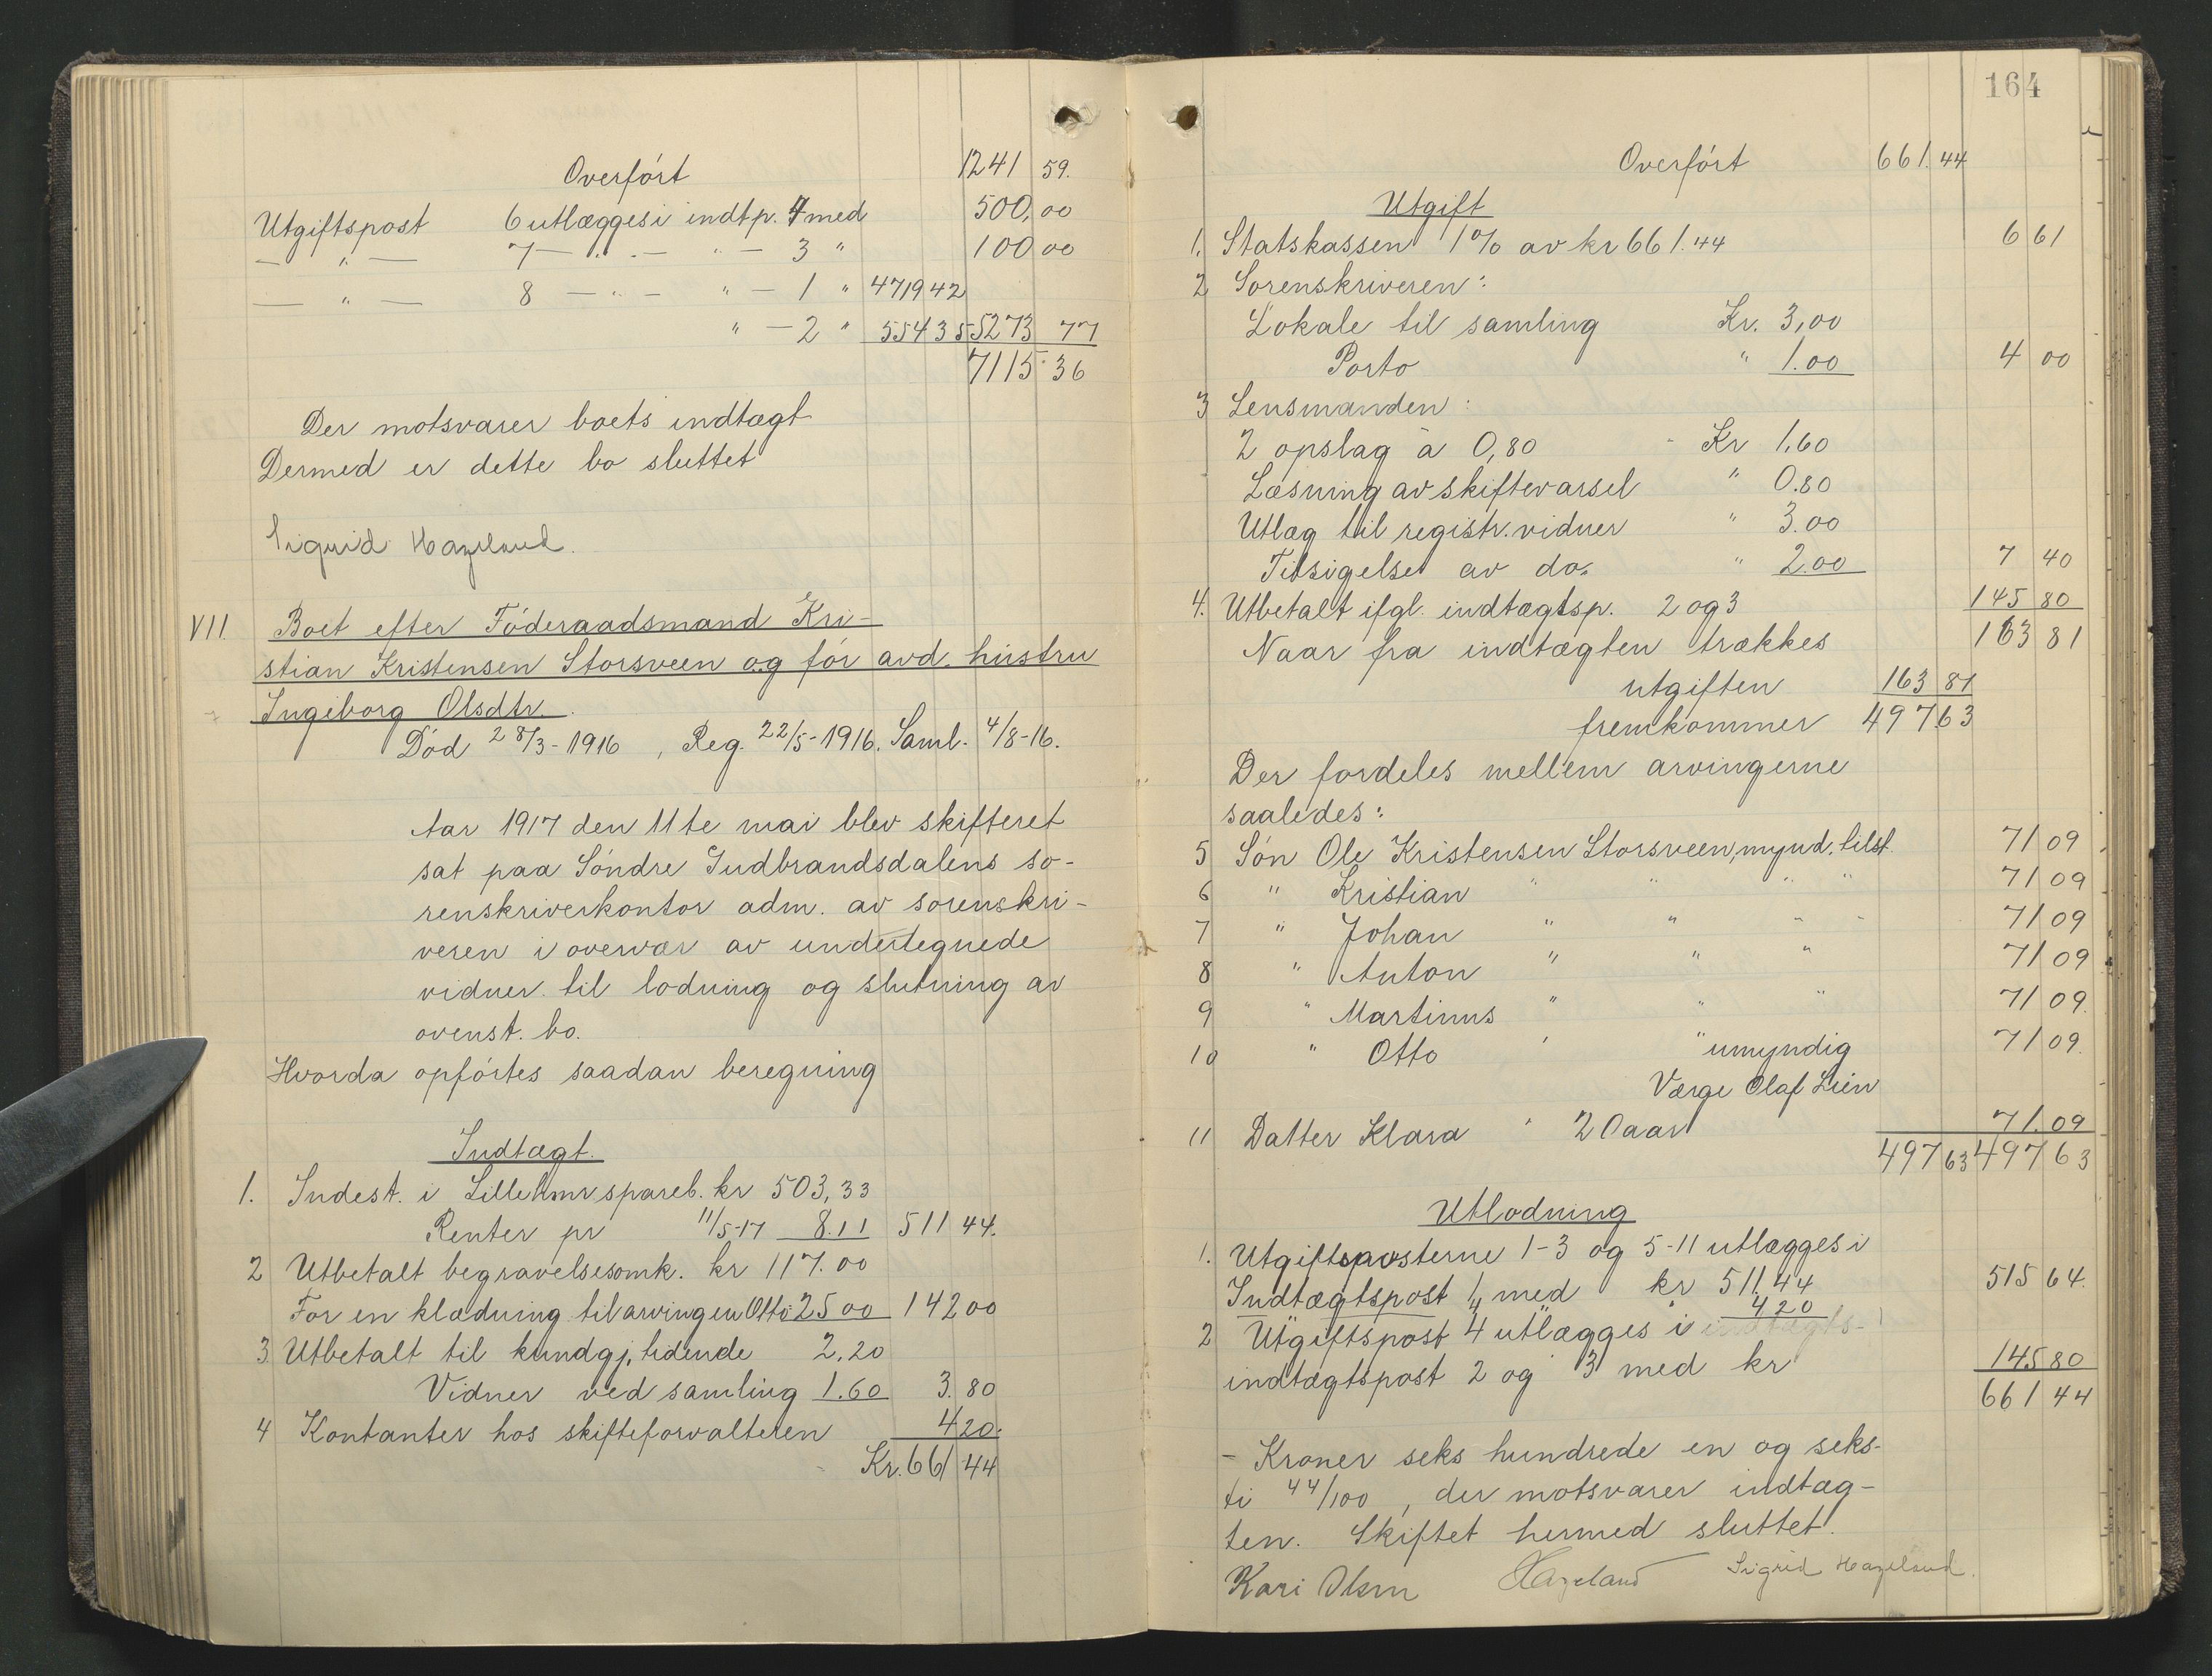 Overført 1241 59.
Utgiftspost 6 utlægges i indtp. 4 med 500,00
— " — 7 — " — " — 3 " 100 00
— " — 8 — " — " — 1 " 4719 42
" — 2 " 554 35 5273 77
7115 36
Der motsvarer boets indtægt
Dermed er dette bo sluttet
Sigrid Hazeland.
VII. Boet efter Føderaadsmand Kri-
stian Kristensen Storsveen og før avd. hustru
Ingeborg Olsdtr.
Død 28/3-1916, Reg. 22/5-1916. Saml. 4/8-16.
Aar 1917 den 11te mai blev skifteret
sat paa Søndre Gudbrandsdalens so-
renskriverkontor adm. av sorenskri-
veren i overvær av undertegnede
vidner til lodning og slutning av
ovenst. bo.
Hvorda opførtes saadan beregning
Indtægt.
1. Indest. i Lillehmr spareb. kr 503,33
Renter pr 11/5-17 8.11 511 44.
2 Utbetalt begravelsesomk. kr 117.00
For en klædning til arvingen Otto 25 00 142 00
3 Utbetalt til kundgj. tidende 2.20
Vidner ved samling 1.60 3.80
4 Kontanter hos skifteforvalteren 4 20.
Kr. 661 44
164
Overført 661.44
Utgift
1. Statskassen 1% av kr 661.44 6 61
2 Sorenskriveren:
Lokale til samling Kr. 3,00
Porto " 1.00 4 00
3 Lensmanden:
2 opslag à 0,80 - Kr 1,60
Læsning av skiftevarsel " 0.80
Utlæg til registr. vidner " 3.00
Tilsigelse av do. " 2.00 7 40
4. Utbetalt ifgl. indtægtsp. 2 og 3 145 80
Naar fra indtægten trækkes 163 81
utgiften 163 81
fremkommer 497 63
Der fordeles mellem arvingerne
saaledes:
5 Søn Ole Kristensen Storsveen, mynd. tilst. 71 09
6 " Kristian " " " " 71 09
7 " Johan " " " " 71 09
8 " Anton " " " 71 09
9 " Martinus " " " 71 09.
10 " Otto " " umyndig 71 09.
Værge Olaf Lien
11 Datter Klara " 20 aar 71.09
497 63 497 63
Utlodning
1. Utgiftsposterne 1-3 og 5-11 utlægges i
Indtægtspost 1 med kr 511.44 515 64.
" 4 " " 4 20
2 Utgiftspost 4 utlægges i indtægts-
indtægtspost 2 og 3 med kr 145 80
661 44
- Kroner seks hundrede en og seks-
ti 44/100, der motsvarer indtæg-
ten. Skiftet hermed sluttet.
Kari Olsen Hazeland Sigrid Hazeland.